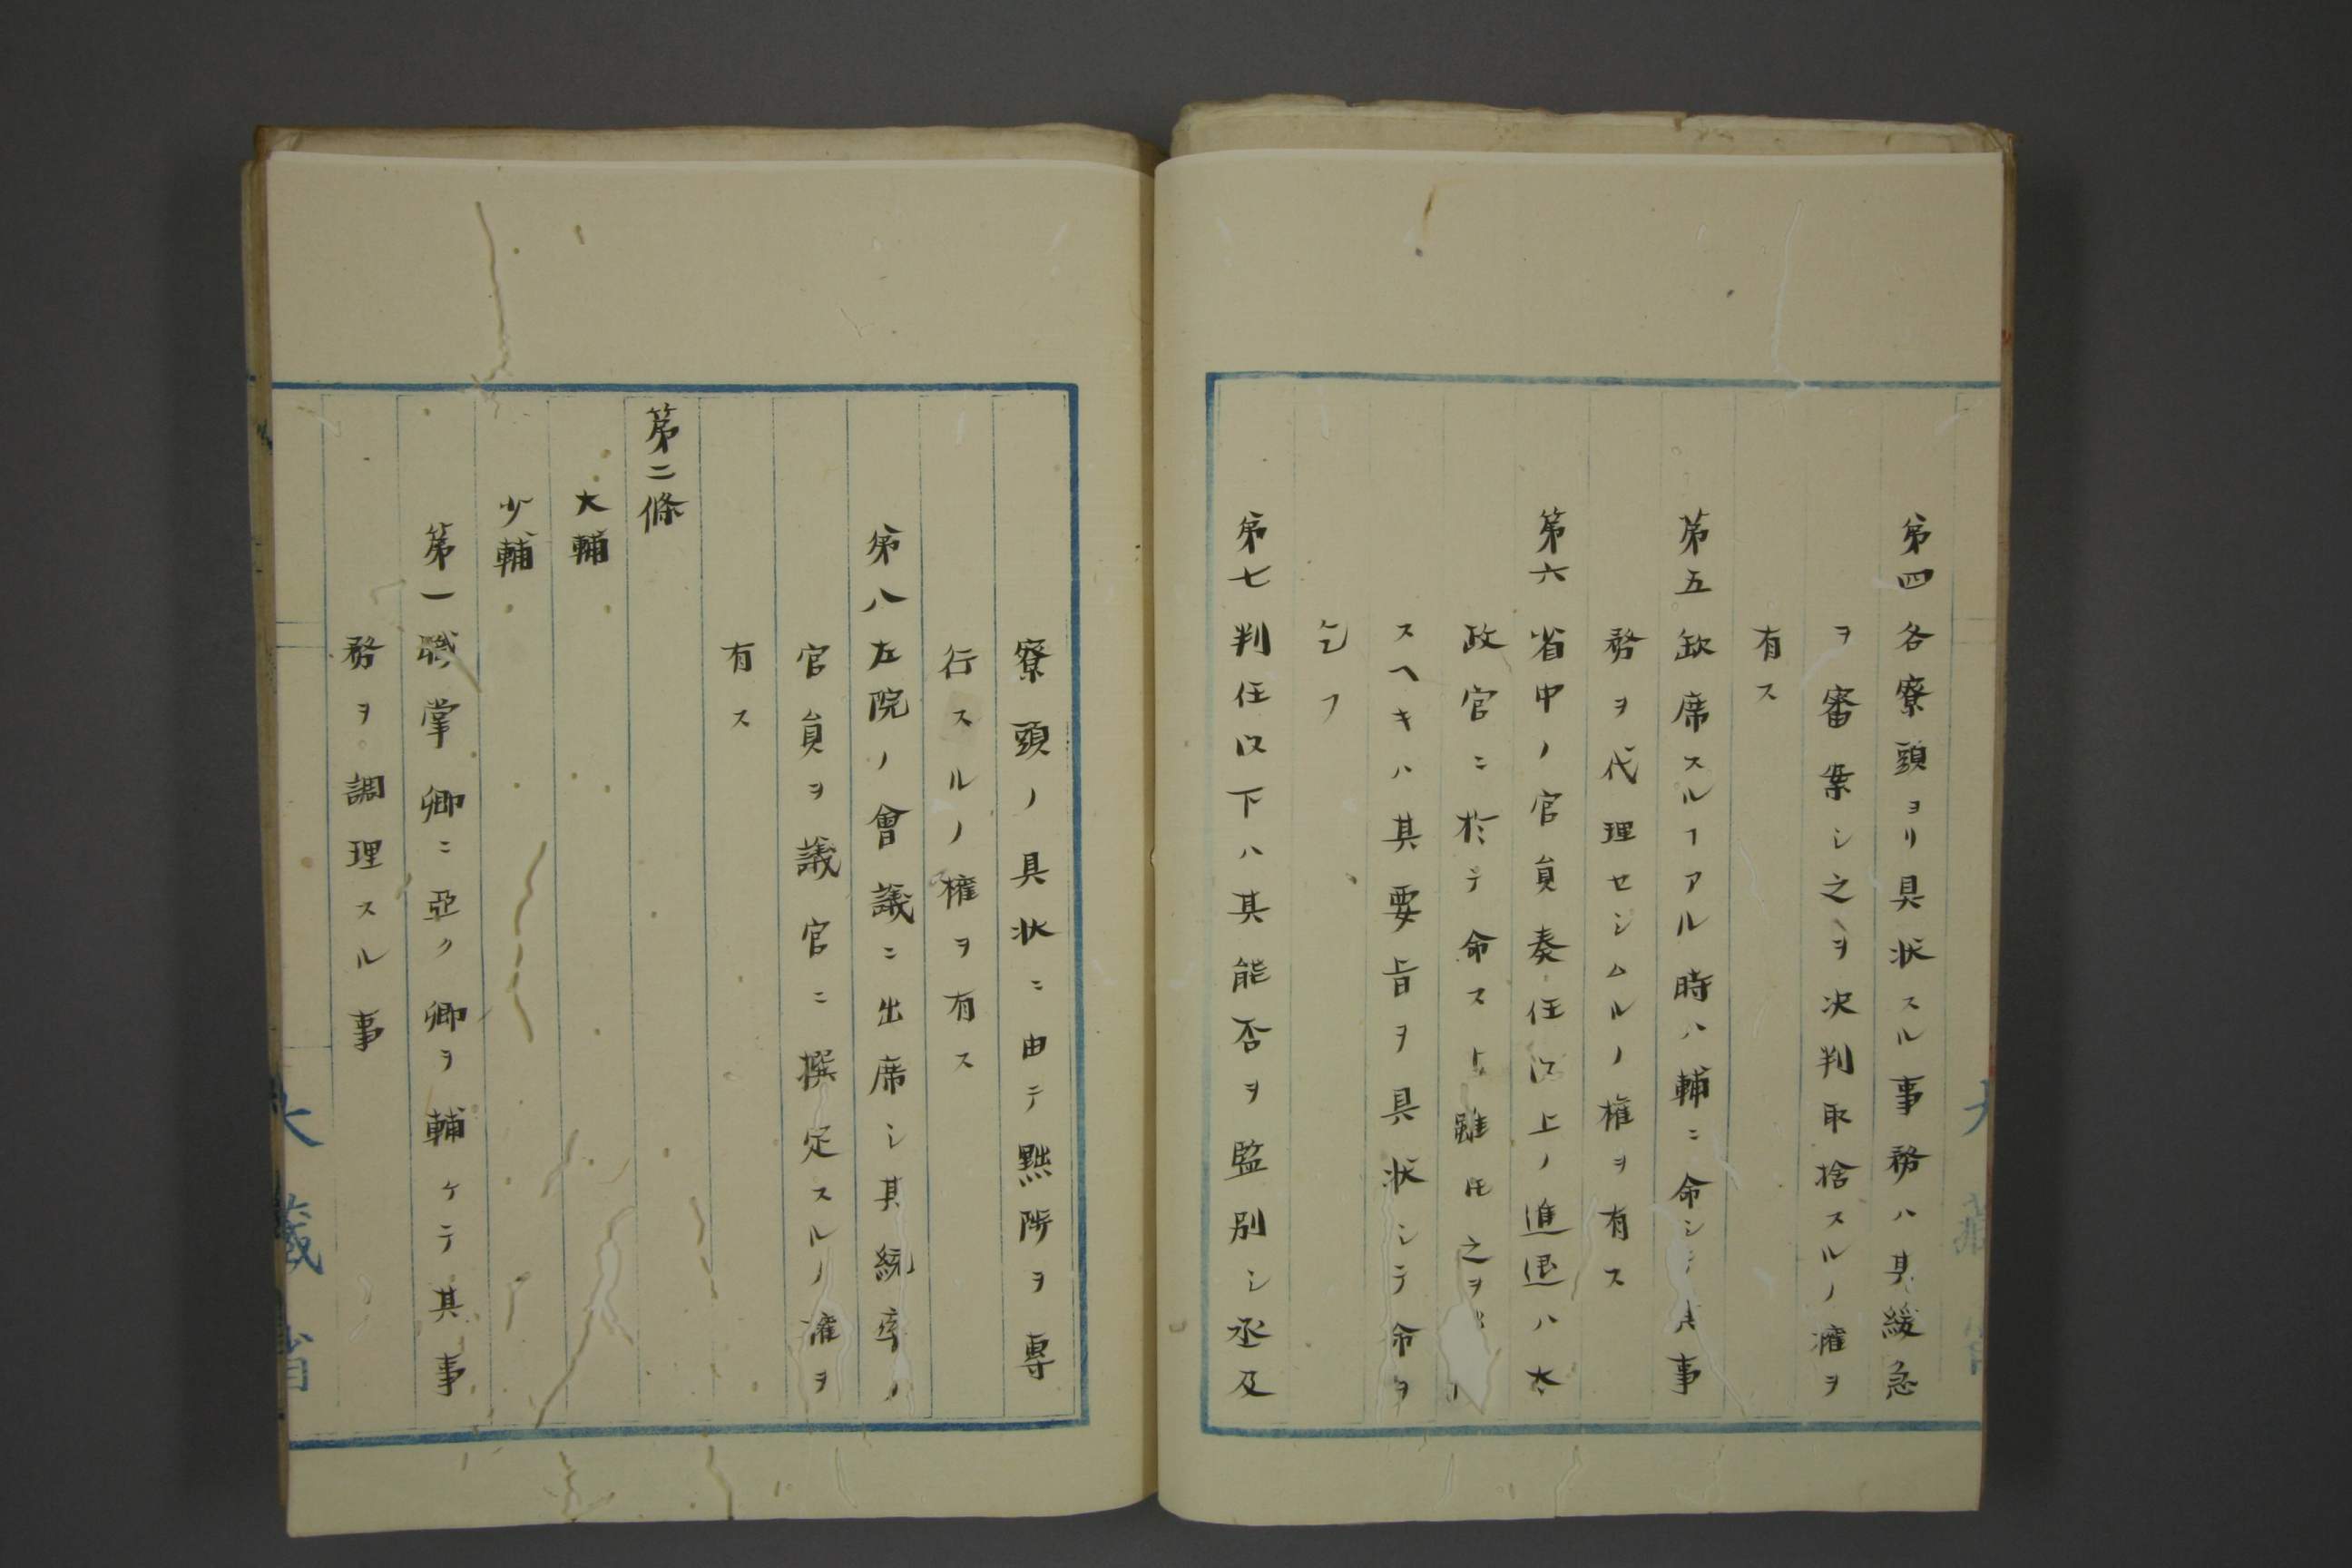 第四各寮頭ヨリ具状スル事務ハ其緩急
ヲ審案シ之ヲ决判取捨スルノ權ヲ
有ス
第五缺席スルヿアル時ハ輔ニ命シテ其事
務ヲ代理セシムルノ權ヲ有ス
第六省中ノ官員奏任以上ノ進退ハ太
政官ニ於テ命スト雖𪜈之ヲ
スヘキハ其要旨ヲ具状シテ命ヲ
乞フ
第七判任以下ハ其能否ヲ監別シ丞及
寮頭ノ具状ニ由テ黜陟ヲ專
行スルノ權ヲ有ス
第八左院ノ會議ニ出席シ其統率ノ
官員ヲ議官ニ撰定スルノ權ヲ
有ス
第二條
大輔
少輔
第一職掌卿ニ亞ク卿ヲ輔ケテ其事
務ヲ調理スル事
大藏省